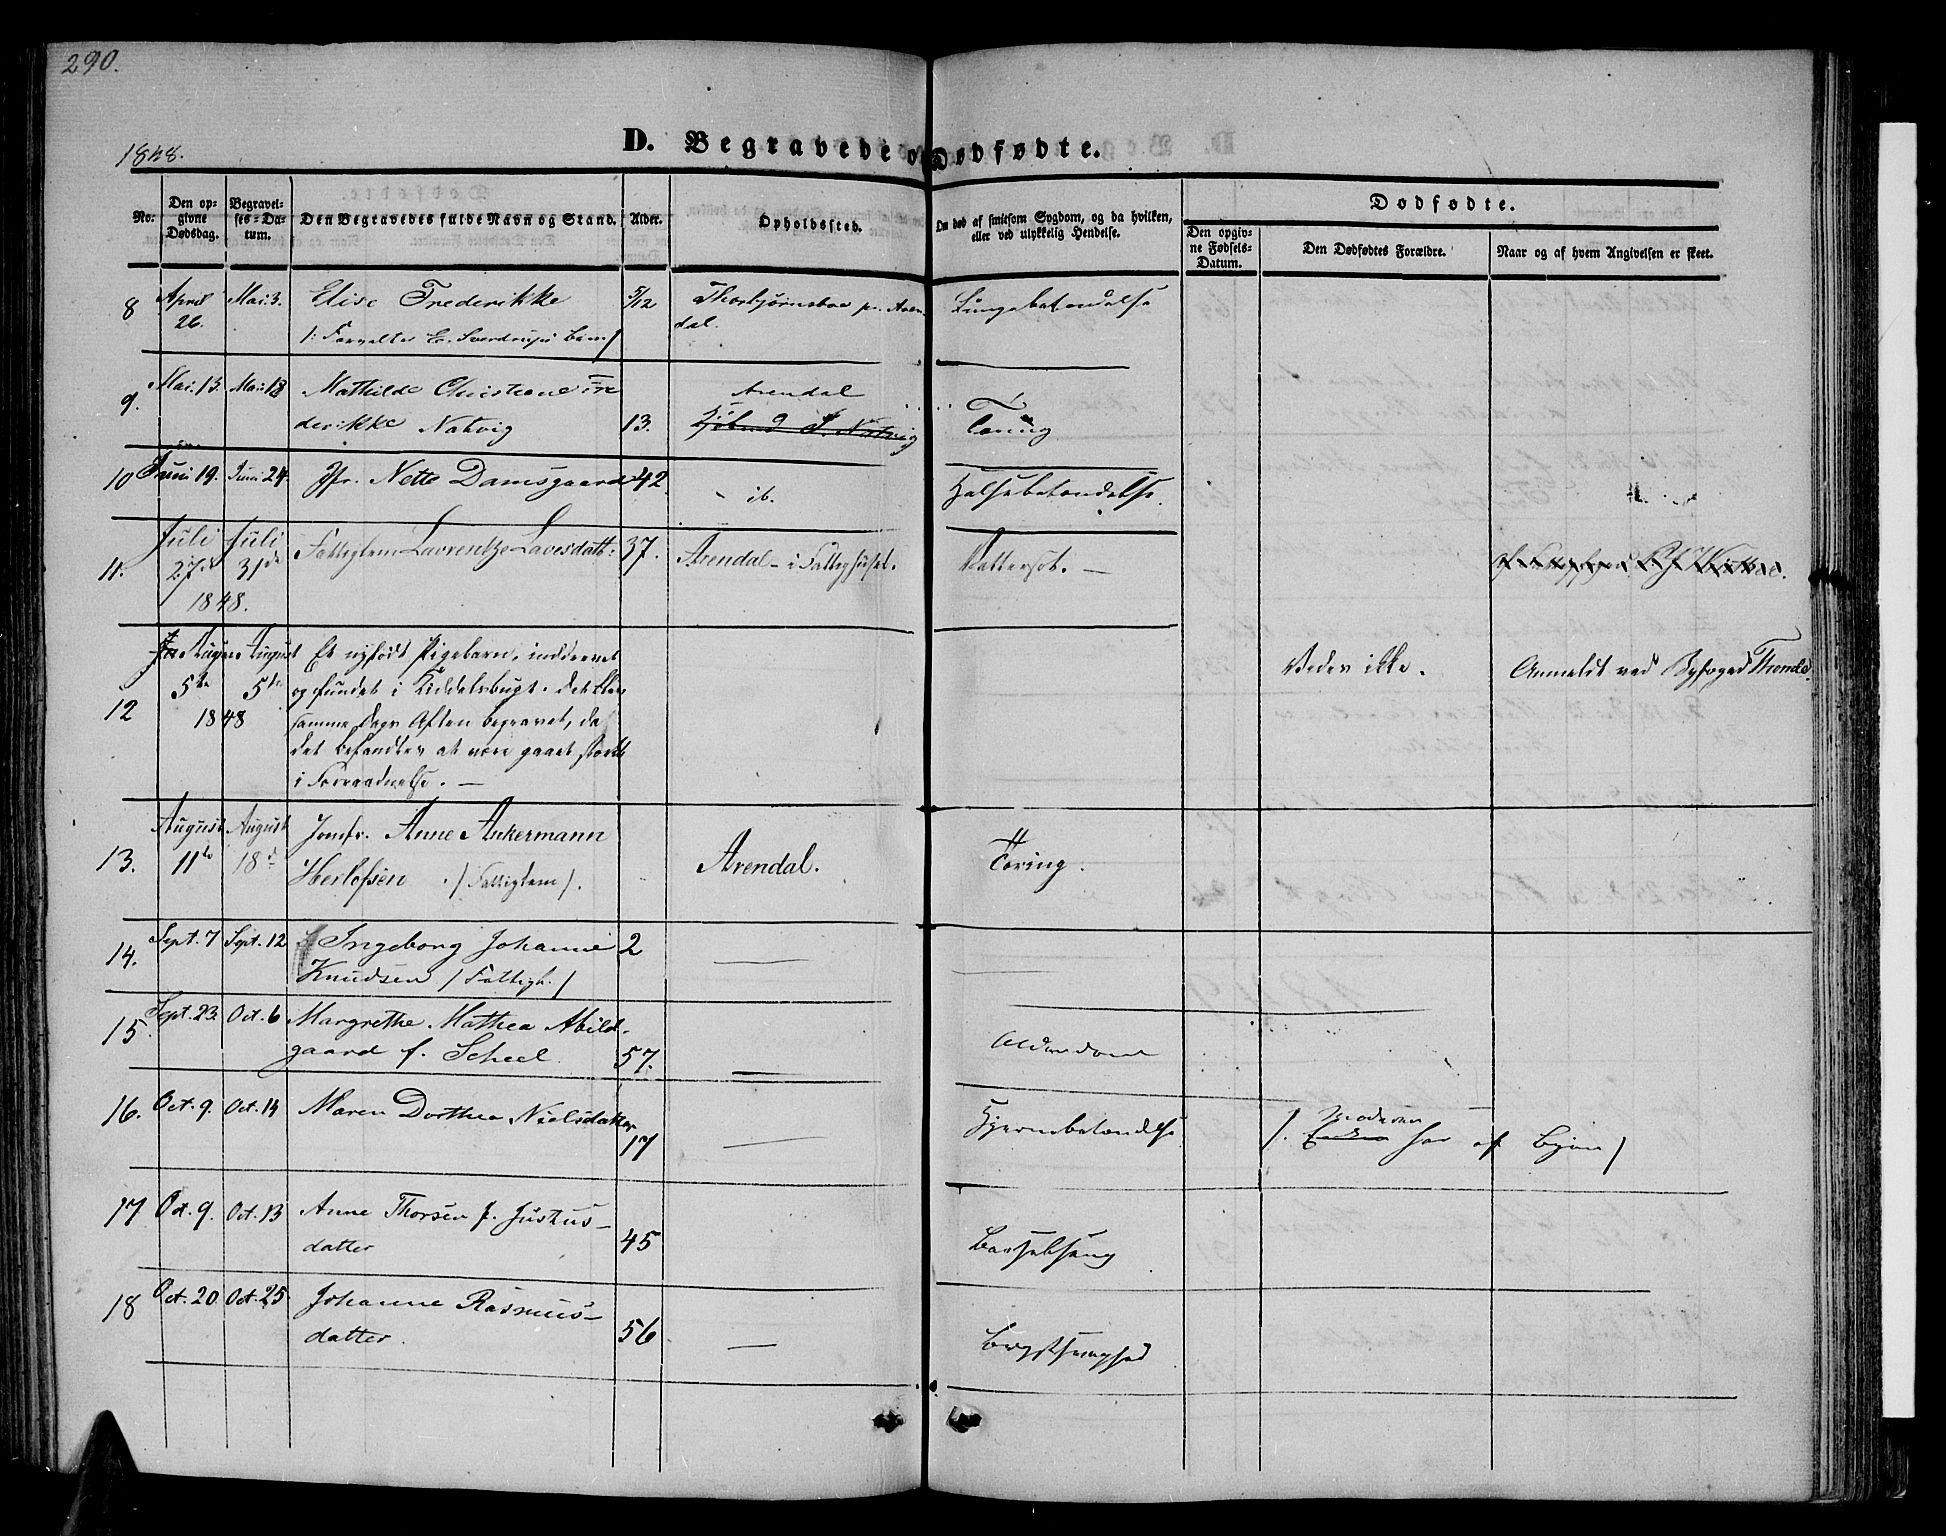 290.
1848.
D. Begravede o Dødfødte.
No.
Den opgivne Dødsdag.
Begravelses-Datum.
Den Begravedes fulde Navn og Stand.
Alder.
Opholdssted.
Om død af smitsom Sygdom, og da hvilken, eller ved ulykkelig Hendelse.
Dødfødte.
Den opgivne Fødsels-Datum.
Den Dødfødtes Forældre.
Naar og af hvem Angivelsen er skeet.
8 April 26. Mai 3. Elise Frederikke 5/12 Thorbjørnsboe pr. Aren-
/: Forvalter E. Sverdrups Barn / dal. Lungebetændelse
9. Mai. 13. Mai 18 Mathilde Christiane Fre Arendal
derikke Natvig 13. Tæring
10 Juni 19. Juni 24. Jfr. Nette Damsgaard 42. ib. Halsebetændelse.
11. Juli 27de Juli 31de Fattiglem Laurentze Lavesdatt: 37. Arendal - i Fattighuset. Vattersot. -
1848.
12 August 5te August 5te Et nyfødt Pigebarn, inddrevet
1848 og fundet i Kiddelsbugt. Det blev
samme Dags Aften begravet, da
det befandtes at være gaaet stærkt
i Forraadnelse. -
Vedes ikke. Anmeldt ved Byfoged
13. August 11te August 18de Jomfr. Anne Ankermann
Herlofsen / Fattiglem /. Arendal. Tæring.
14. Sept. 7 Sept. 12 Ingeborg Johanne 2
Knudsen / Fattigh. /
15. Sept. 23. Oct. 6 Margrethe Mathea Abild-
gaard f. Scheel 57. Alderdom
16. Oct. 9. Oct. 14 Maren Dorthea Nielsdatter 17 Hjernebetændelse
/. Moderen her af Byen /
17 Oct. 9. Oct. 13 Anne Thorsen f. Justus-
datter 45 Barselseng
18 Oct. 20 Oct. 25. Johanne Rasmus-
datter. 56 Brystsvaghed